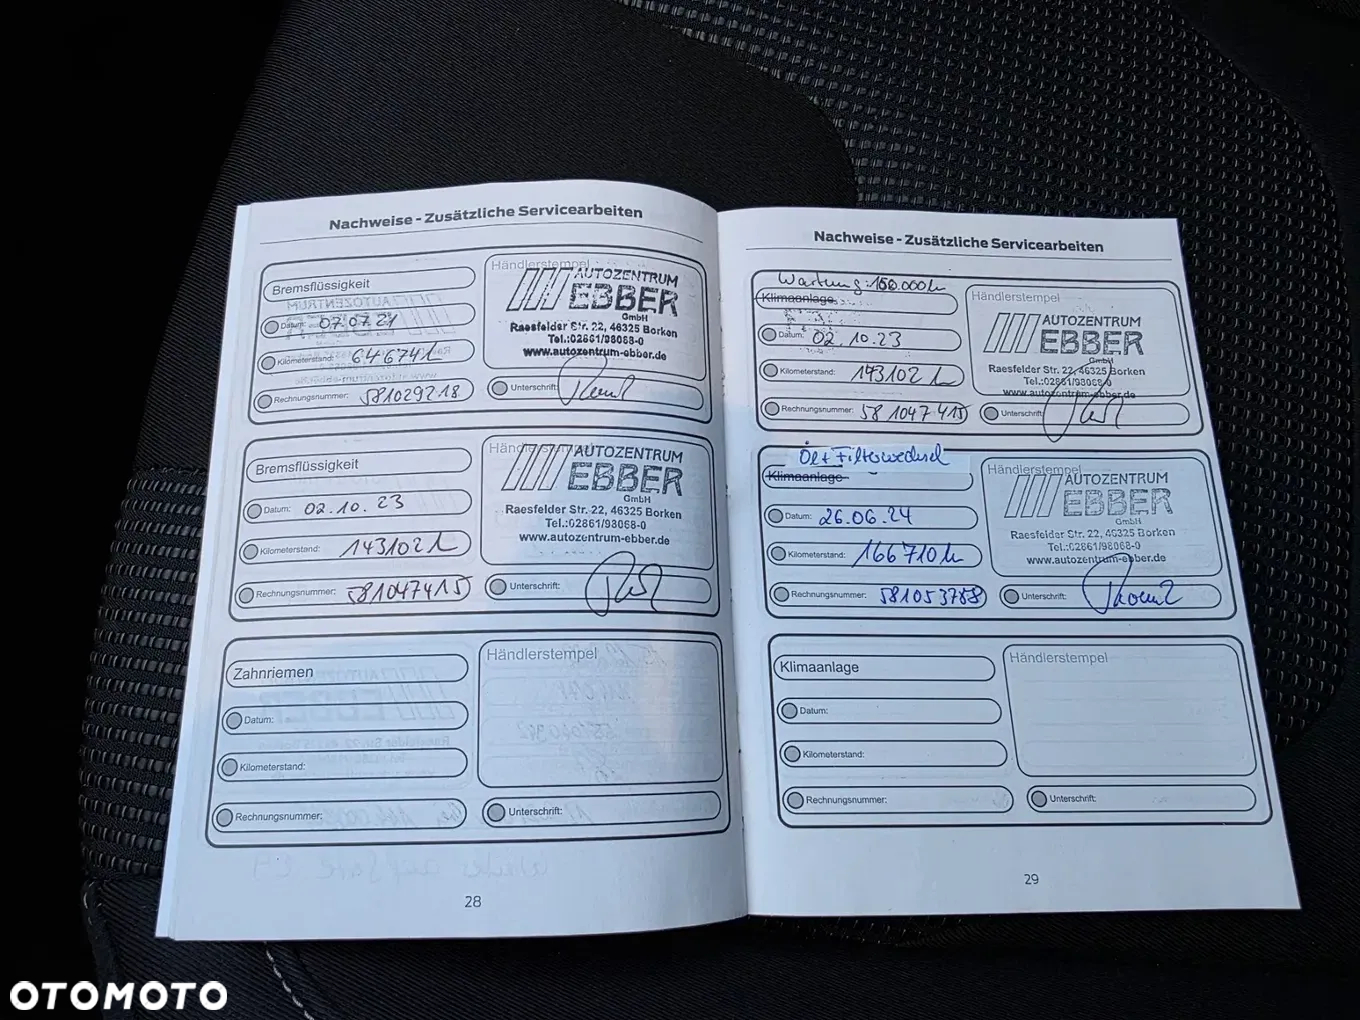 Nachweise - Zusätzliche Servicearbeiten
Bremsflüssigkeit
Datum: 07.07.21
Kilometerstand: 64674 k
Rechnungsnummer: 581029218
Händlerstempel
AUTOZENTRUM
EBBER
GmbH
Raesfelder Str. 22, 46325 Borken
Tel.:02861/98068-0
www.autozentrum-ebber.de
Unterschrift:
Bremsflüssigkeit
Datum: 02.10.23
Kilometerstand: 143102 k
Rechnungsnummer: 581047415
Händlerstempel
AUTOZENTRUM
EBBER
GmbH
Raesfelder Str. 22, 46325 Borken
Tel.:02861/98068-0
www.autozentrum-ebber.de
Unterschrift:
Zahnriemen
Datum:
Kilometerstand:
Rechnungsnummer:
Händlerstempel
Unterschrift:
28
Nachweise - Zusätzliche Servicearbeiten
Wartung
Klimaanlage
Datum: 02.10.23
Kilometerstand: 143102 k
Rechnungsnummer: 581047415
Händlerstempel
AUTOZENTRUM
EBBER
GmbH
Raesfelder Str. 22, 46325 Borken
Tel.:02861/98068-0
www.autozentrum-ebber.de
Unterschrift:
Öl + Filterwechsel
Klimaanlage
Datum: 26.06.24
Kilometerstand: 166710 k
Rechnungsnummer: 581053788
Händlerstempel
AUTOZENTRUM
EBBER
GmbH
Raesfelder Str. 22, 46325 Borken
Tel.:02861/98068-0
www.autozentrum-ebber.de
Unterschrift:
Klimaanlage
Datum:
Kilometerstand:
Rechnungsnummer:
Händlerstempel
Unterschrift:
29
OTOMOTO